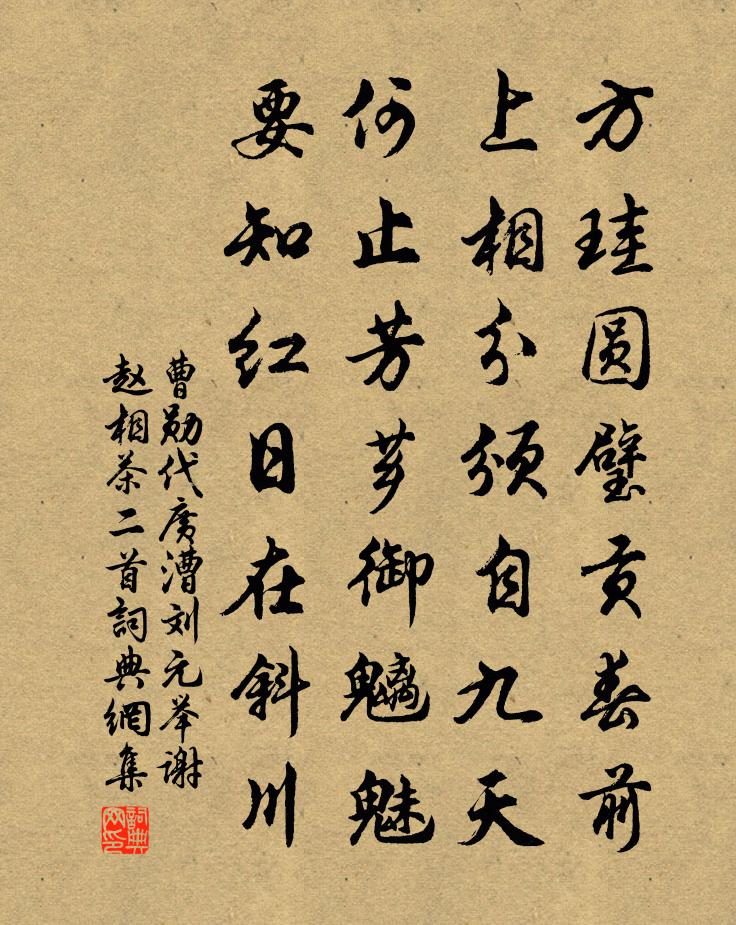 方珪圆璧贡春前
上相分颁自九天
何止芳芽御魑魅
要知红日在斜川
曹勋代廣漕刘元举谢
赵相茶二首詞典網集
詞典网印